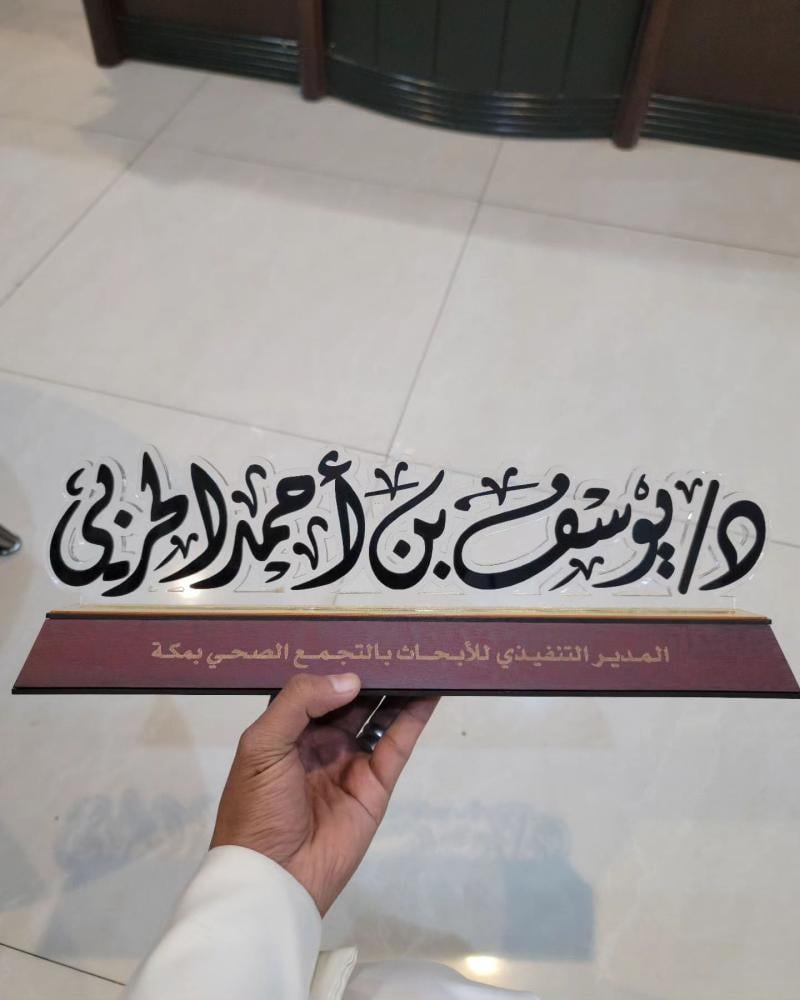 د/ يوسف بن أحمد الحربي
المدير التنفيذي للأبحاث بالتجمع الصحي بمكة